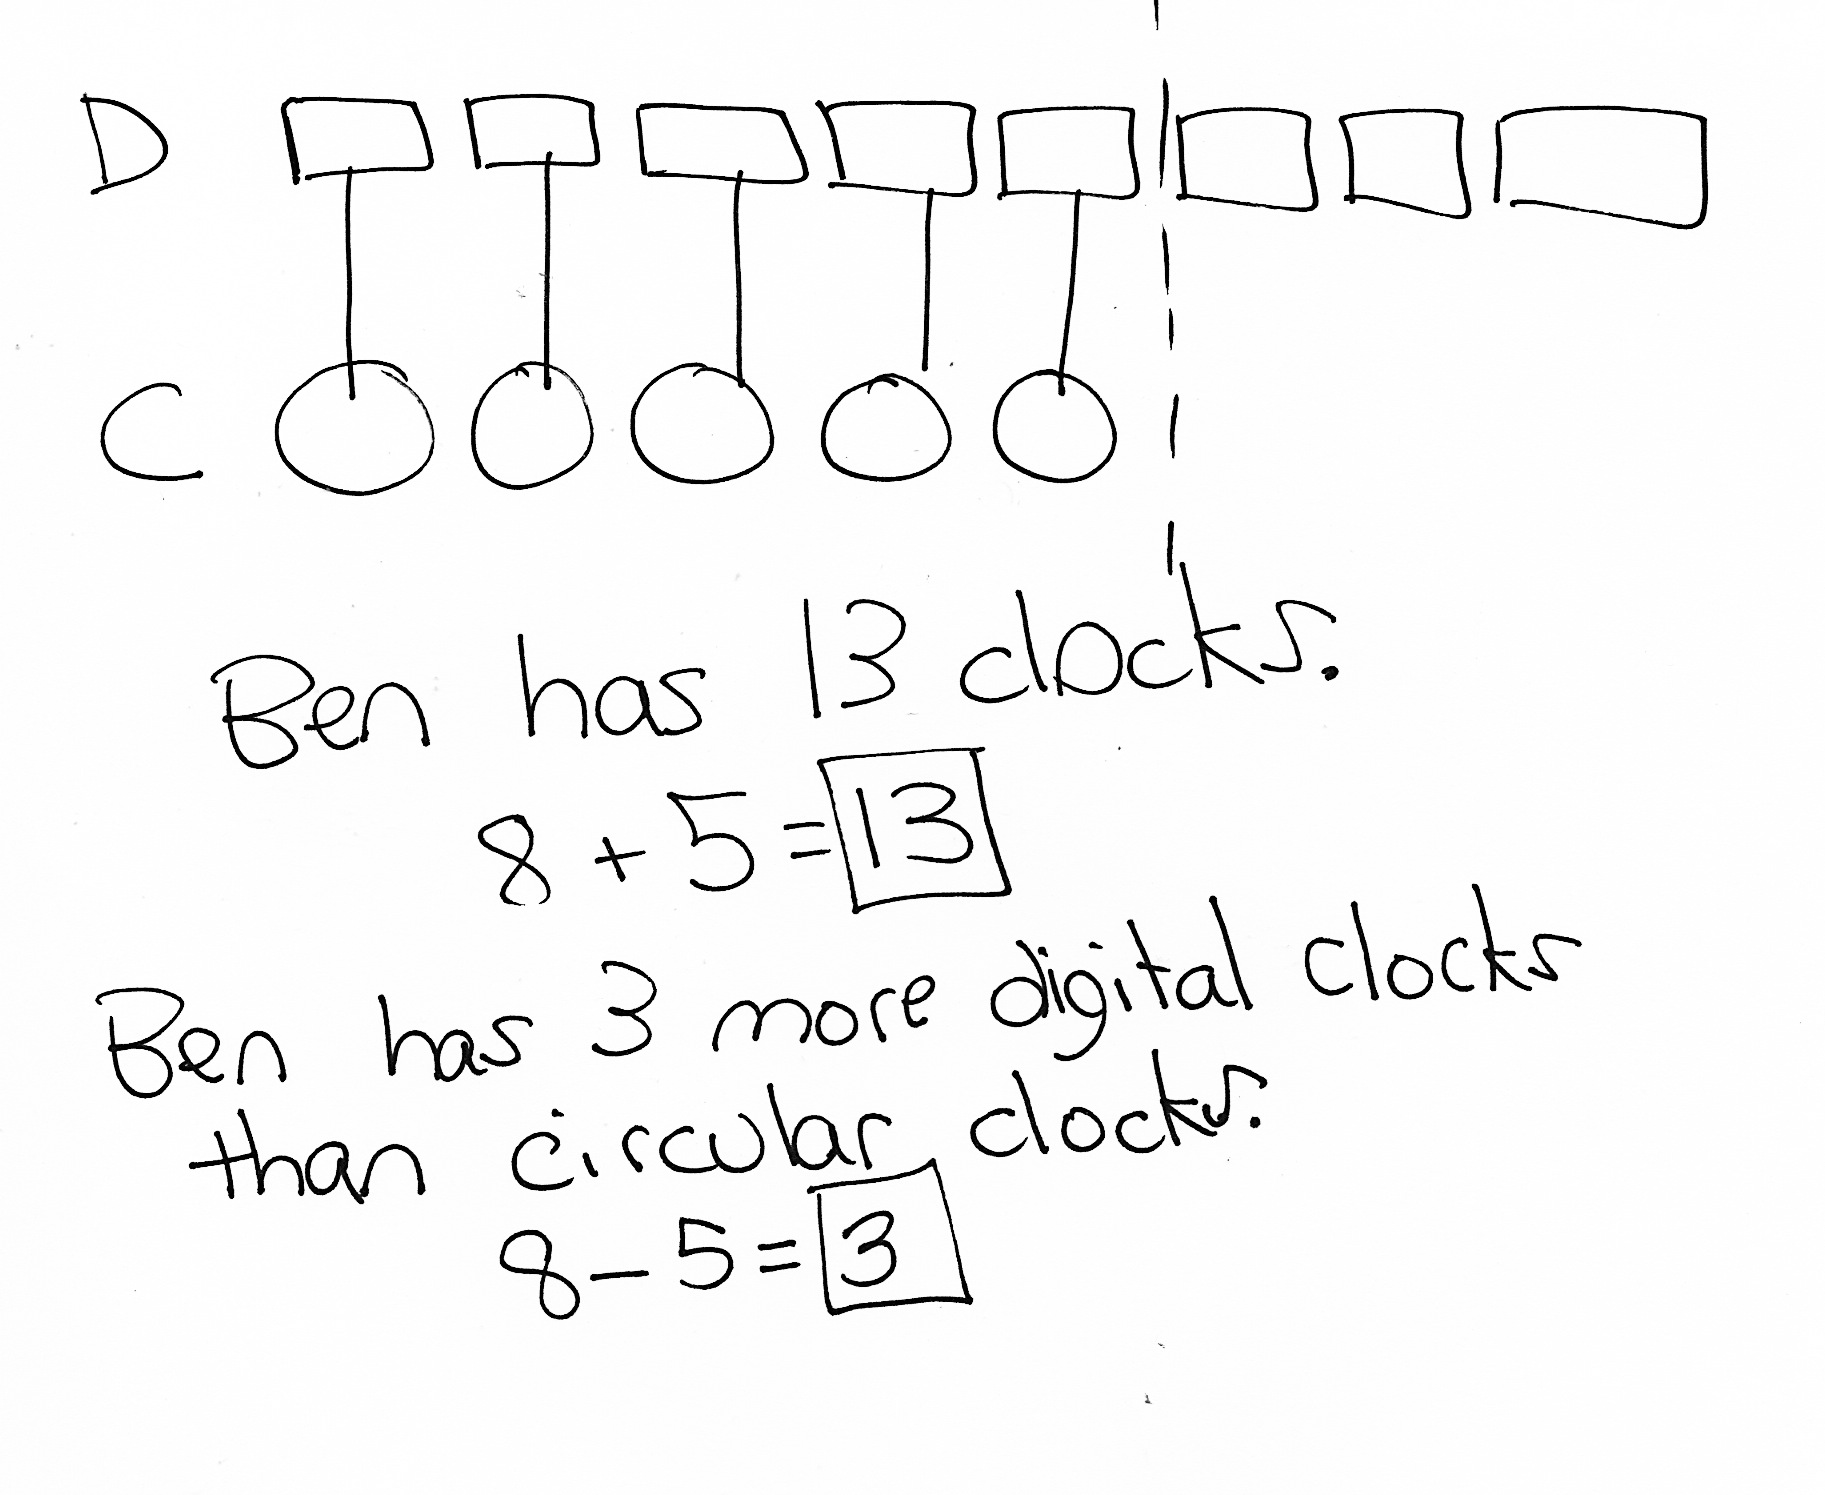 D
C
Ben has 13 clocks.
8 + 5 = 13
Ben has 3 more digital clocks
than circular clocks.
8 - 5 = 3